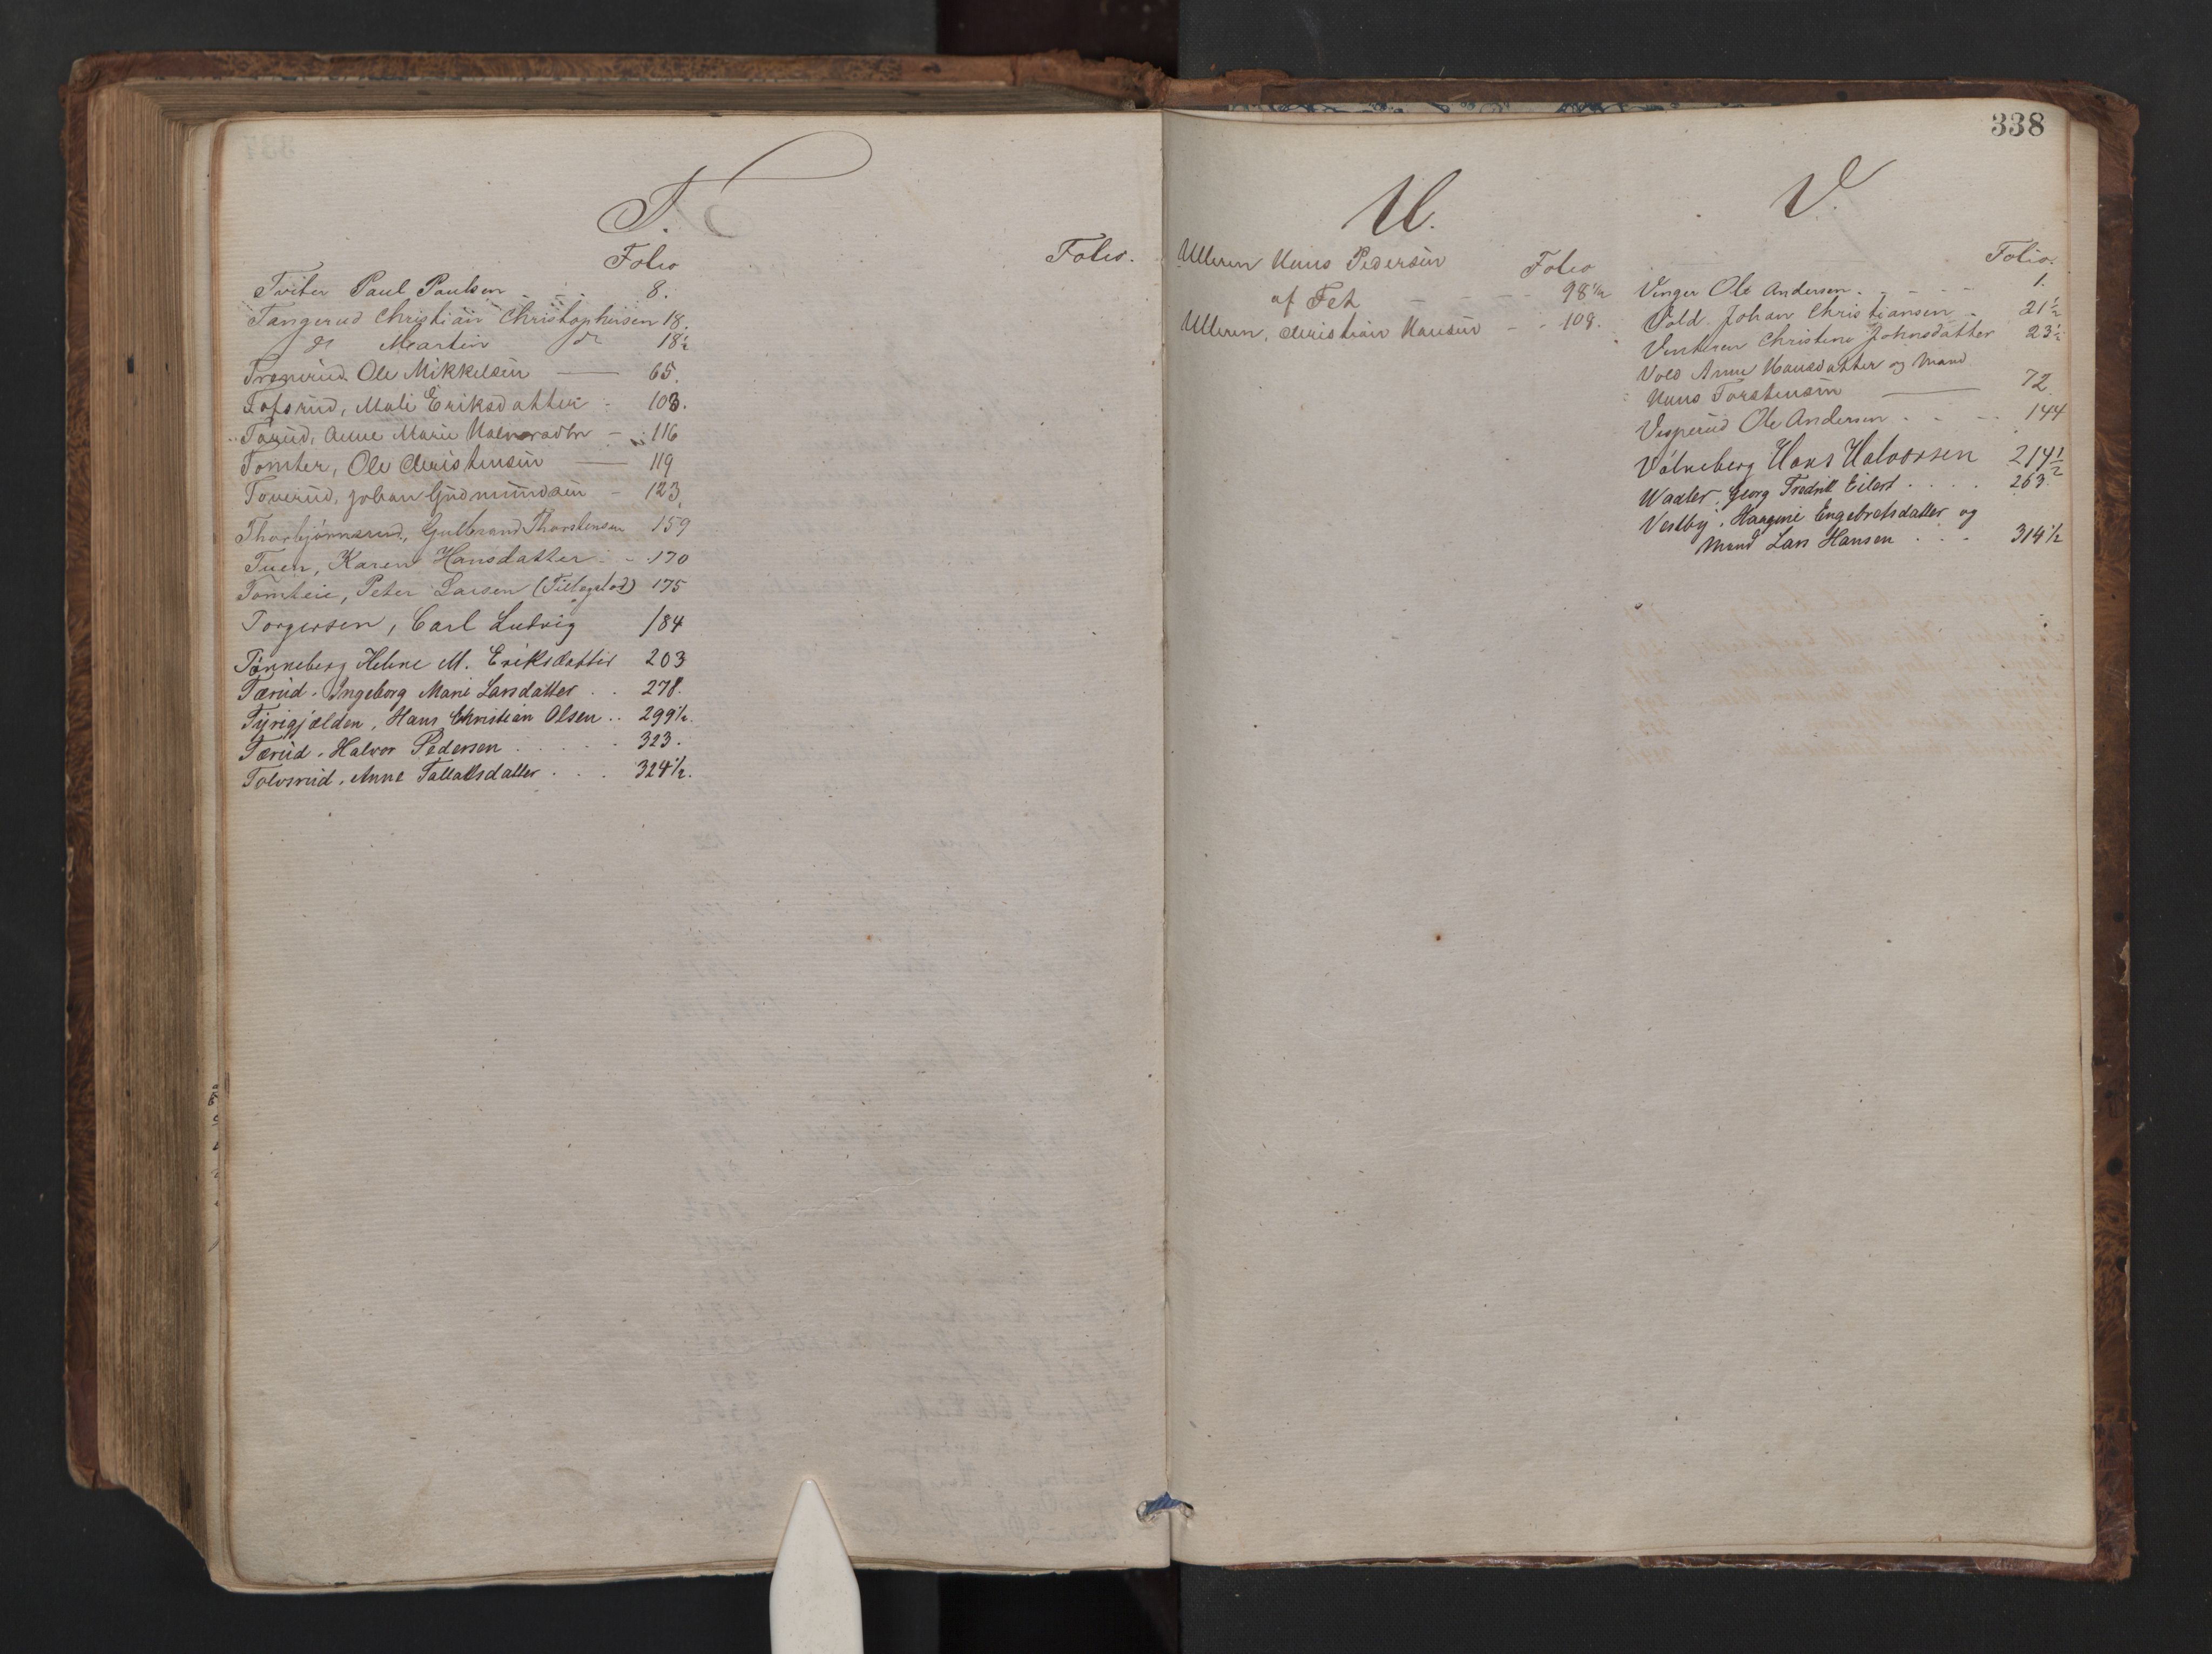 T.
Folio
Folio.
Tviter Paul Paulsen 8.
Tangerud Christian Christophersen 18.
do Martin do 18½
Ole Mikkelsen — 65.
Tofsrud, Mali Eriksdatter 103.
Tårud, Anne Marie — 116
Tomter, Ole Christensen — 119
Toverud, Johan Gudmundsen — 123
Thorbjørnsrud, Gulbrand Thorstensen 159
Tuen, Karen Hansdatter - - 170
Tomteie, Peter Larsen 175
Torgersen, Carl Ludvig 184
Tønneberg Helene M. Eriksdatter 203
Tærud. Ingeborg Marie Larsdatter . . 278.
Tyrigjælden, Hans Christian Olsen . . 299½.
Tærud. Halvor Pedersen . . . . . 323.
Tolvsrud. Anne Tallaksdatter . . . 324½.
338
U.
Folio
Ulleren Hans Pedersen
af Fet - - - - 98½
Ulleren, Christian Hansen - - 109.
V.
Folio.
Vinger Ole Andersen. - - - - 1.
Vold Johan Christiansen - 21½
Christine Johnsdatter 23½
Vold Anne Hansdatter og Mand
Hans Torstensen — 72
Vesperud Ole Andersen - - - 144
Vålneberg Hans Halvorsen 214½
Waaler. Georg Fredrik Eilert . . . . 263.
Vestby. Haagine Engebretsdatter og
Mand Lars Hansen . . . 314½